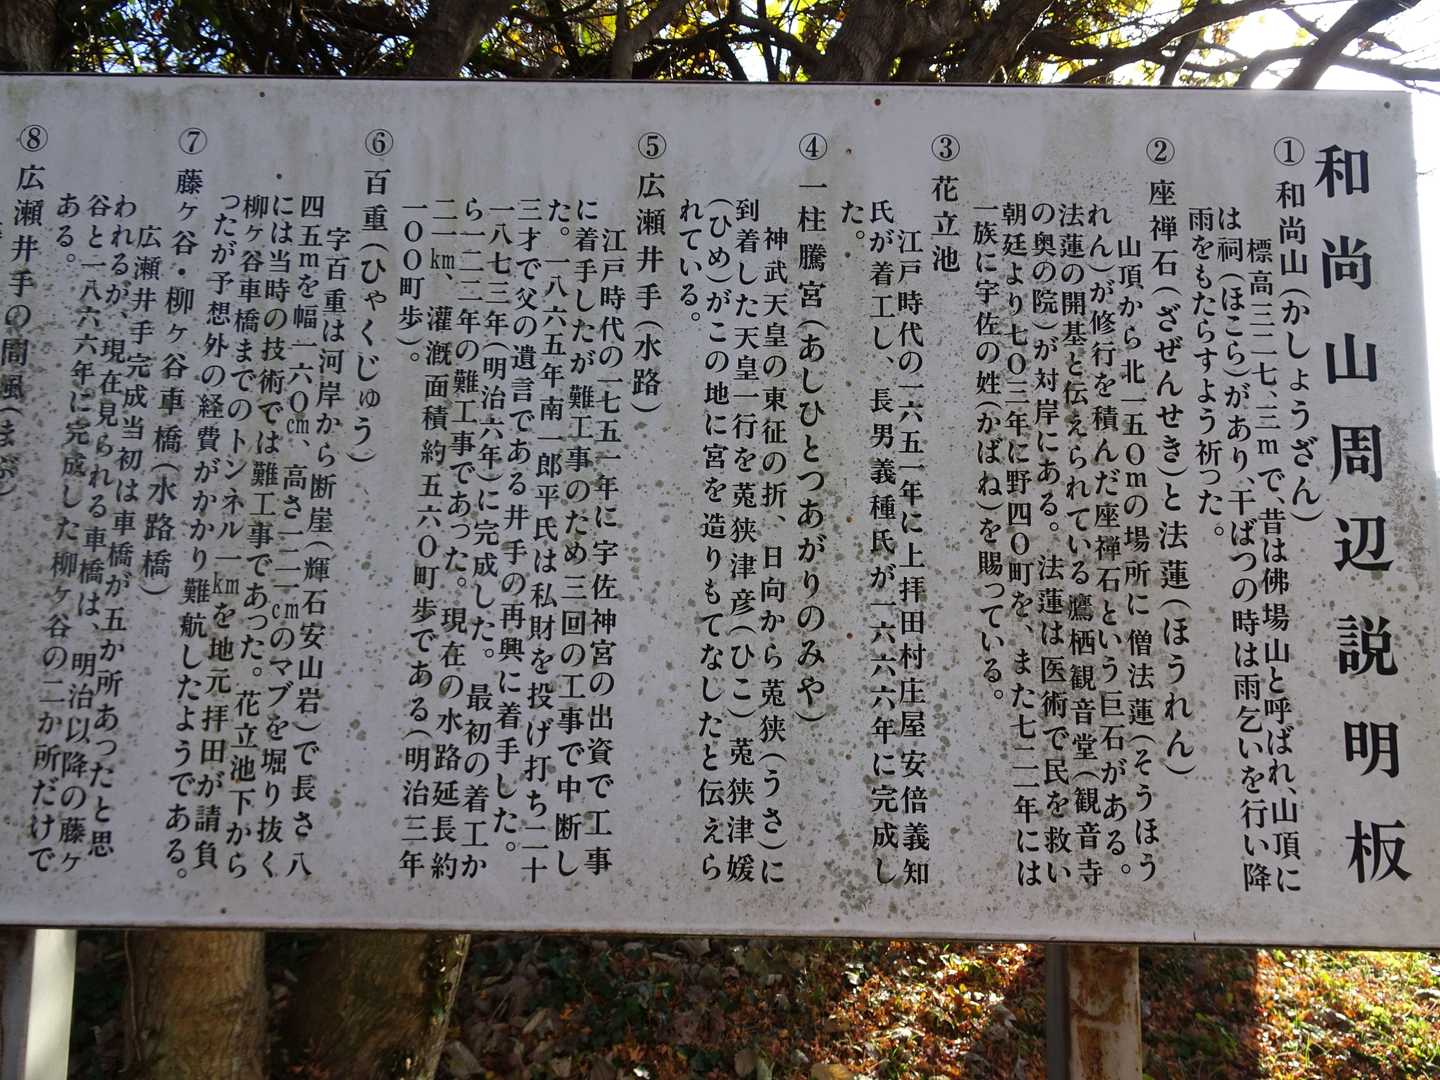 和尚山周辺説明板
①和尚山(かしょうざん)
標高三二七、三mで、昔は佛場山と呼ばれ、山頂に
は祠(ほこら)があり、干ばつの時は雨乞いを行い降
雨をもたらすよう祈った。
②座禅石(ざぜんせき)と法蓮(ほうれん)
山頂から北一五〇mの場所に僧法蓮(そうほう
れん)が修行を積んだ座禅石という巨石がある。
法蓮の開基と伝えられている鷹栖観音堂(観音寺
の奥の院)が対岸にある。法蓮は医術で民を救い
朝廷より七〇三年に野四〇町を、また七二一年には
一族に宇佐の姓(かばね)を賜っている。
③花立池
江戸時代の一六五一年に上拝田村庄屋安倍義知
氏が着工し、長男義種氏が一六六六年に完成し
た。
④一柱騰宮(あしひとつあがりのみや)
神武天皇の東征の折、日向から莵狭(うさ)に
到着した天皇一行を莵狭津彦(ひこ)莵狭津媛
(ひめ)がこの地に宮を造りもてなしたと伝えら
れている。
⑤広瀬井手(水路)
江戸時代の一七五一年に宇佐神宮の出資で工事
に着手したが難工事のため三回の工事で中断し
た。一八六五年南一郎平氏は私財を投げ打ち二十
三才で父の遺言である井手の再興に着手した。
一八七三年(明治六年)に完成した。最初の着工か
ら一二二年の難工事であった。現在の水路延長約
二一㎞、灌漑面積約五六〇町歩である(明治三年
一〇〇町歩)。
⑥百重(ひゃくじゅう)
字百重は河岸から断崖(輝石安山岩)で長さ八
四五mを幅一六〇㎝、高さ二一二㎝のマブを堀り抜く
には当時の技術では難工事であった。花立池下から
柳ヶ谷車橋までのトンネル一㎞を地元拝田が請負
ったが予想外の経費がかかり難航したようである。
⑦藤ヶ谷・柳ヶ谷車橋(水路橋)
広瀬井手完成当初は車橋が五か所あったと思
われるが、現在見られる車橋は、明治以降の藤ヶ
谷と一八六六年に完成した柳ヶ谷の二か所だけで
ある。
⑧広瀬井手の間風(まぶ)